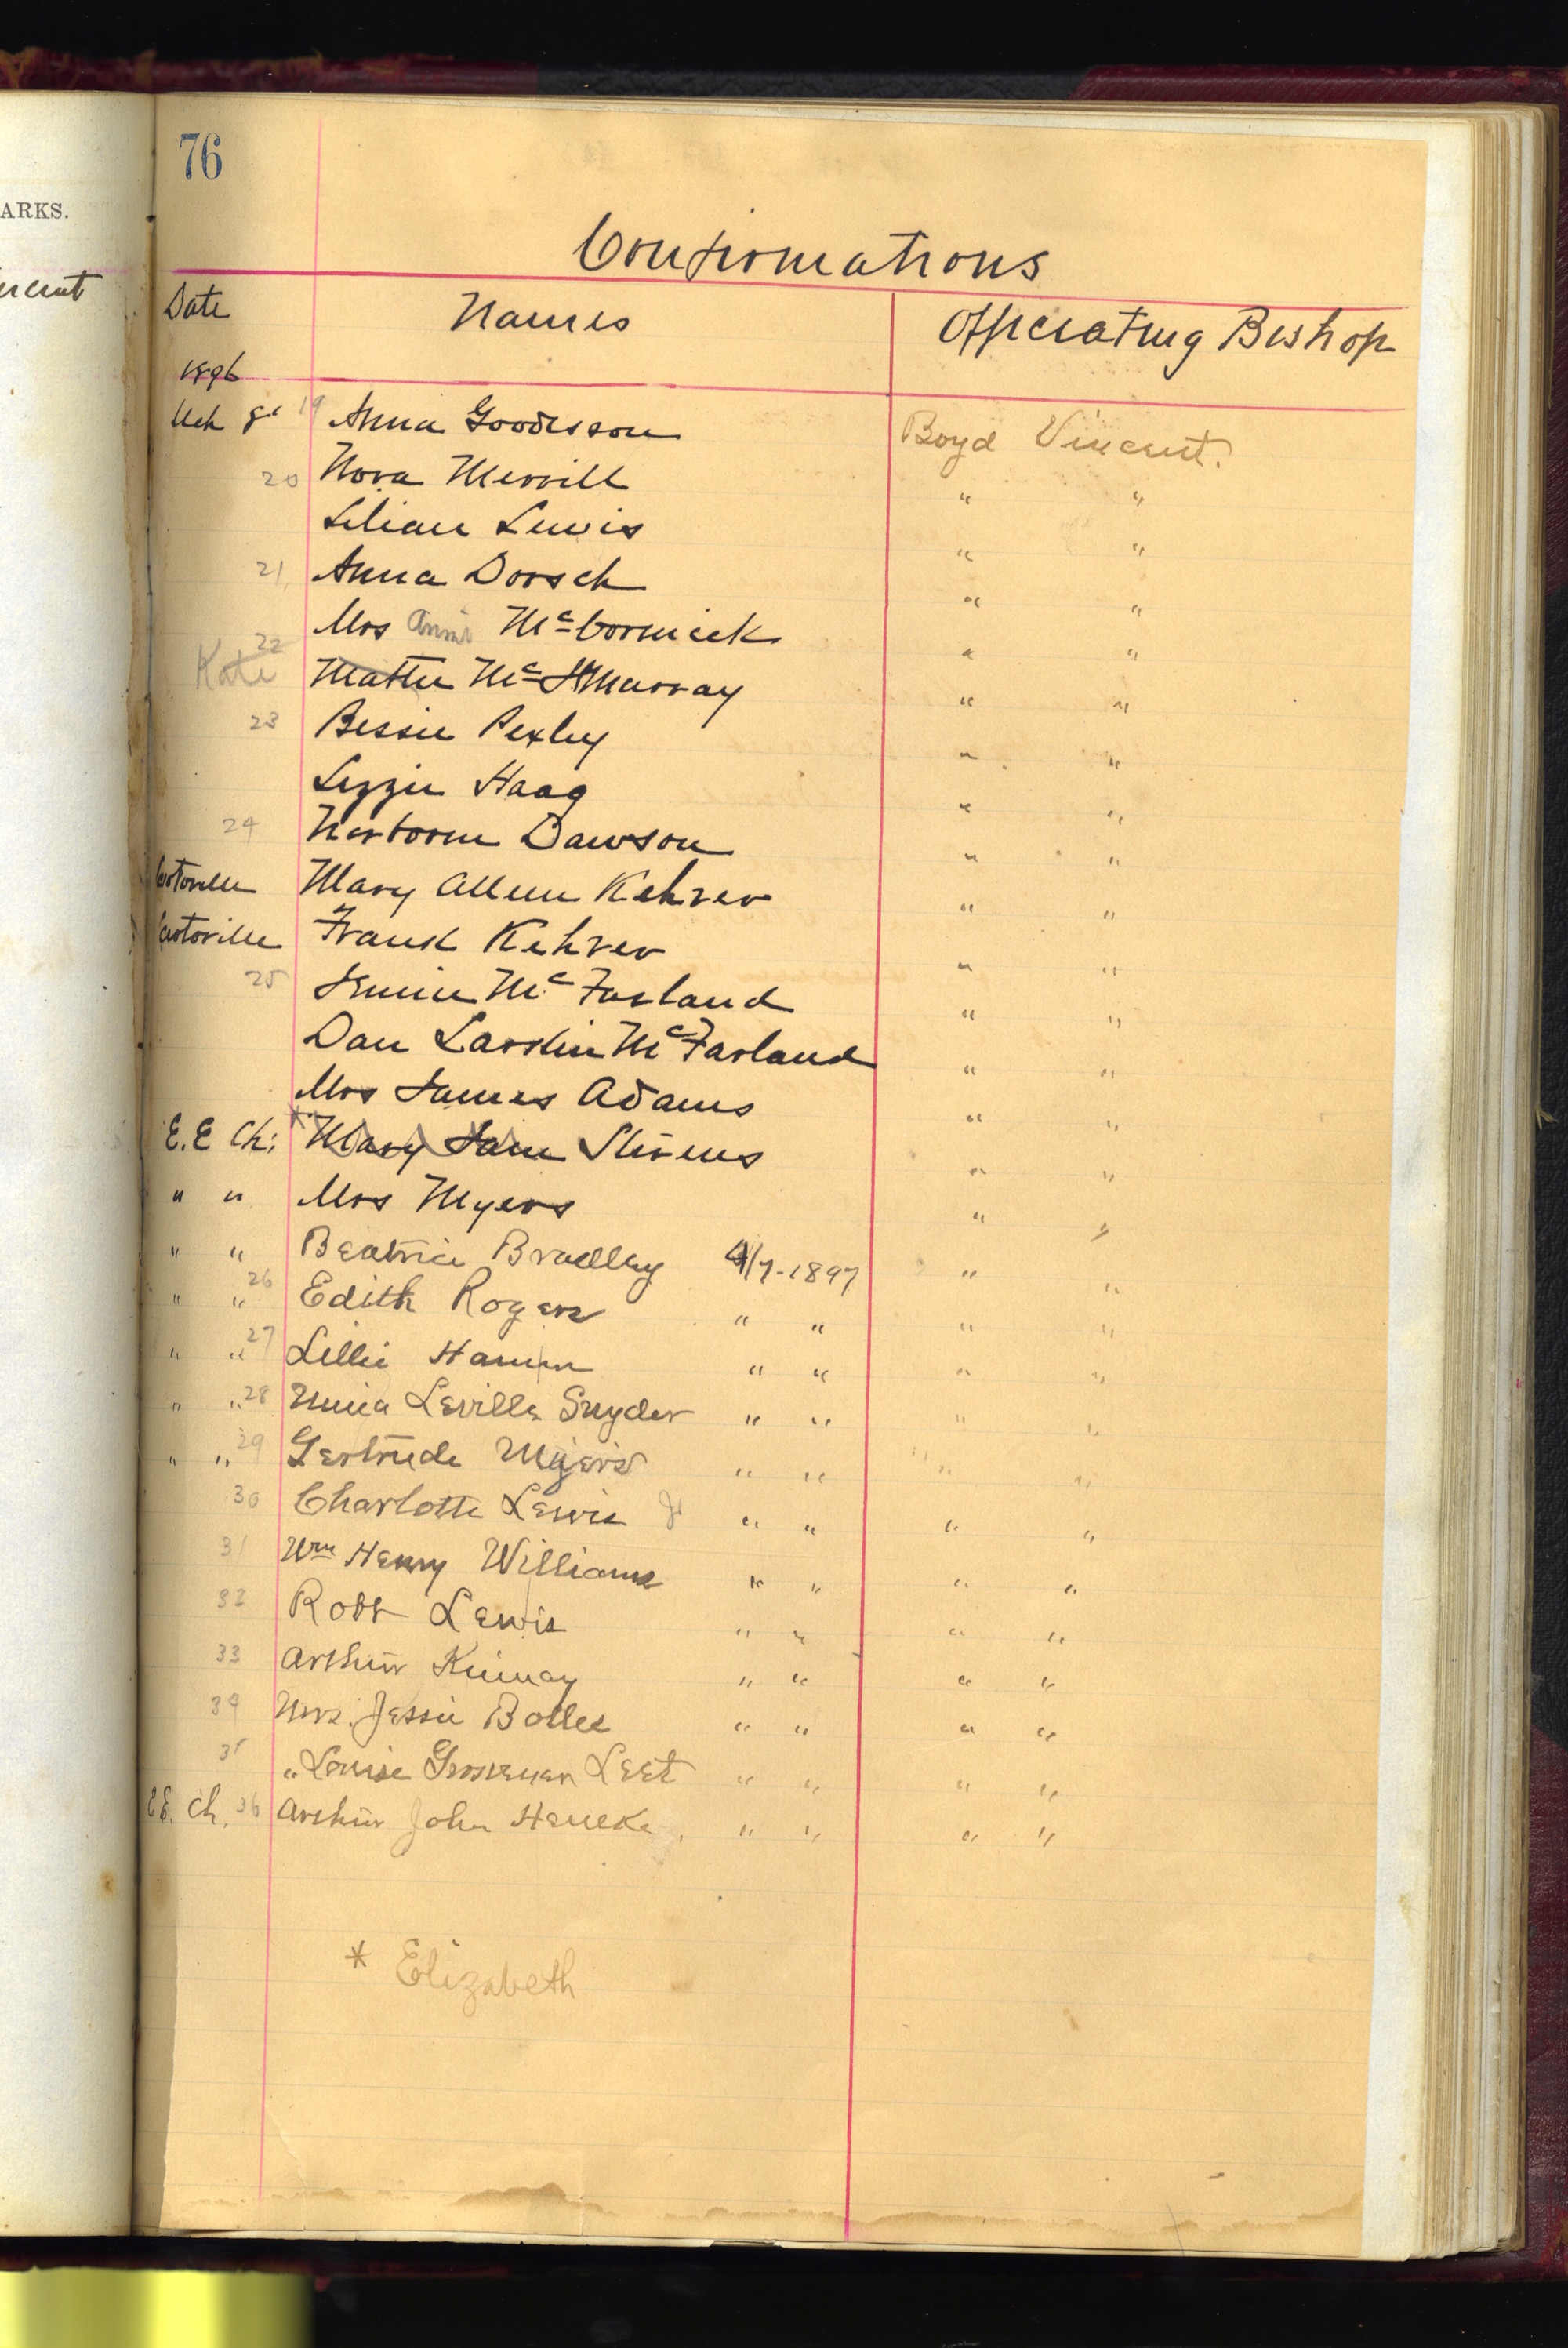 76
ARKS.
Confirmations
Date Names Officiating Bishop
1896
Mch 8 19 Anna Goodisson Boyd Vincent.
20 Nora Merrill " "
Lilian Lewis " "
21 Anna Dorsch " "
Mrs Annie Mc Cormick " "
22
Kate Mattie Mc Murray " "
23 Bessie Pexley " "
Lizzie Haag " "
24 Dawson " "
Mary Allen Kehrer " "
Sciotoville Frank Kehrer " "
25 Jennie Mc Farland " "
Dan Larkin Mc Farland " "
Mrs James Adams " "
E.E Ch: * Mary Jane Stevens " "
" " Mrs Myers " "
" " Beatrice Bradley 4/7-1897 " "
" " 26 Edith Rogers " " " "
" " 27 Lillie Hamm " " " "
" " 28 Levilla Snyder " " " "
" " 29 Gertrude Myers " " " "
30 Charlotte Lewis Jr " " " "
31 Wm Henry Williams " " " "
32 Robt Lewis " " " "
33 Arthur " " " "
34 Mrs. Jessie Bolles " " " "
35 " Louise Leet " " " "
EE. Ch. 36 Arthur John " " " "
* Elizabeth